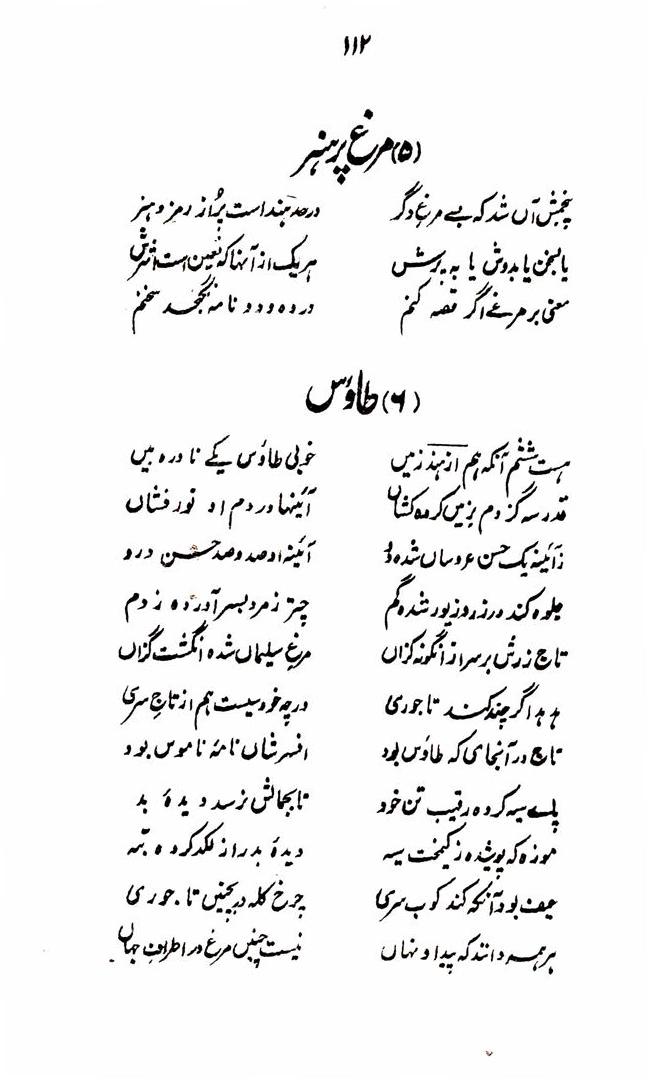 ۱۱۲
(۵) مرغ پر هنر
پنجمش آں شد که بسے مرغ دگر در حد هند است پُر از رمز و هنر
یا بسخن یا بدوش یا به پرش هر یک از آنها که تعین است اثرش
معنی بر مرغے اگر قصه کنم در ده و دو نامه نگنجد سخنم
(۶) طاؤس
هست ششم آنکه هم از هند زمین خوبی طاؤس یکے نادره بین
قدر سه گز دم بزمین کرده کشاں آئینها در دم او نور فشاں
ز آئینه یک حسن عروساں شده آئینه او صد و صد حسن درو
جلوه کند در زر و زیور شده گم چتر زمرد بسر آورده ز دم
تاج زرش بر سر از انگونه گزاں مرغ سلیماں شده انگشت گزاں
هدهد اگر چند کند تاجوری درچه خودسیت هم از تاج سری
تاج در آنجای که طاؤس بود افسر شاں نامهٔ ناموس بود
پاے سیه کرده رقیب تن خود تا بجمالش نرسد دیدهٔ بد
موزه که پوشیده ز کیمخت سیه دیدهٔ بد را ز لگد کرده تبه
حیف بود آنکه کند کوب سری چرخ کله در بچنیں تاجوری
بر همه دانند که پیدا و نهاں نیست چنیں مرغ در اطراف جهاں